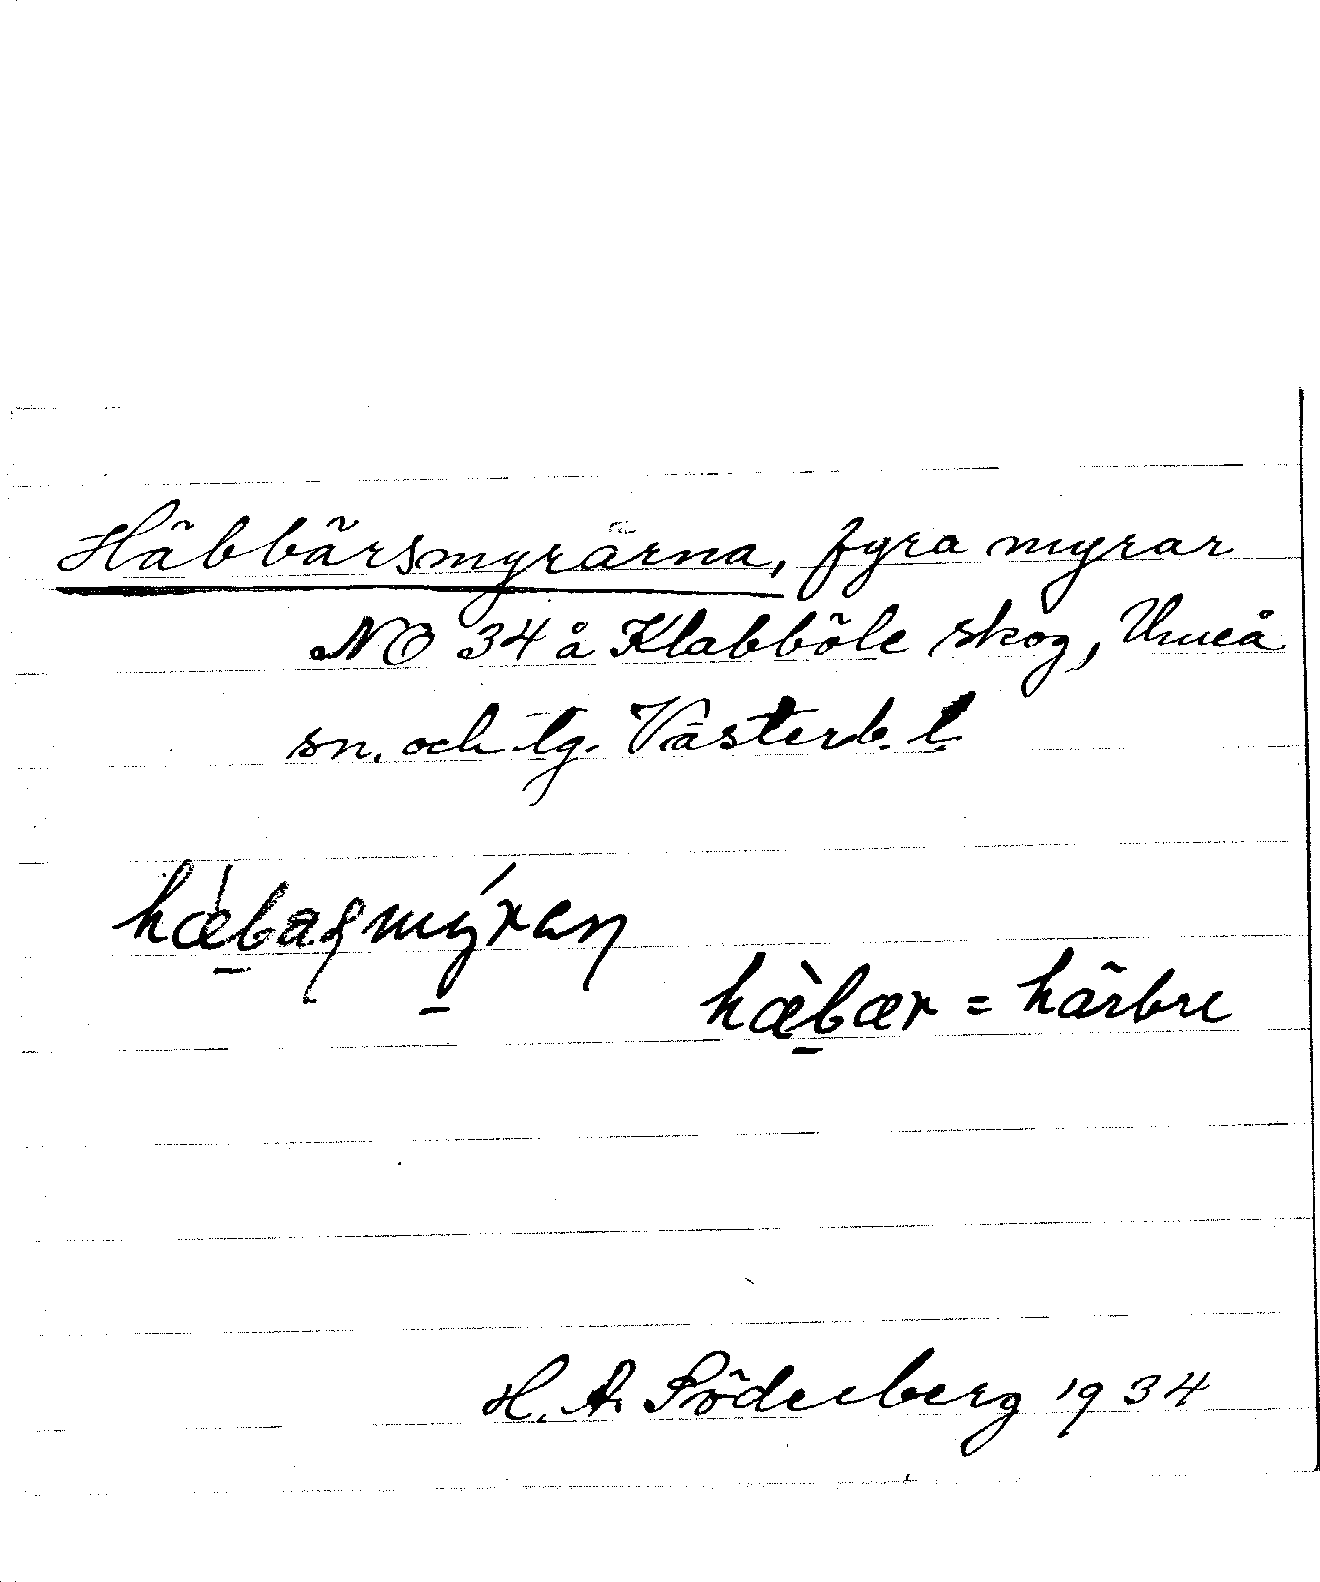 Häbbärsmyrärna, fyra myrar
NO 34 å Klabböle skog, Umeå
sn. och tg. Västerb. l.
hæ̀baʂmýran
hæ̀bær = härbre
H. A. Söderberg 1934